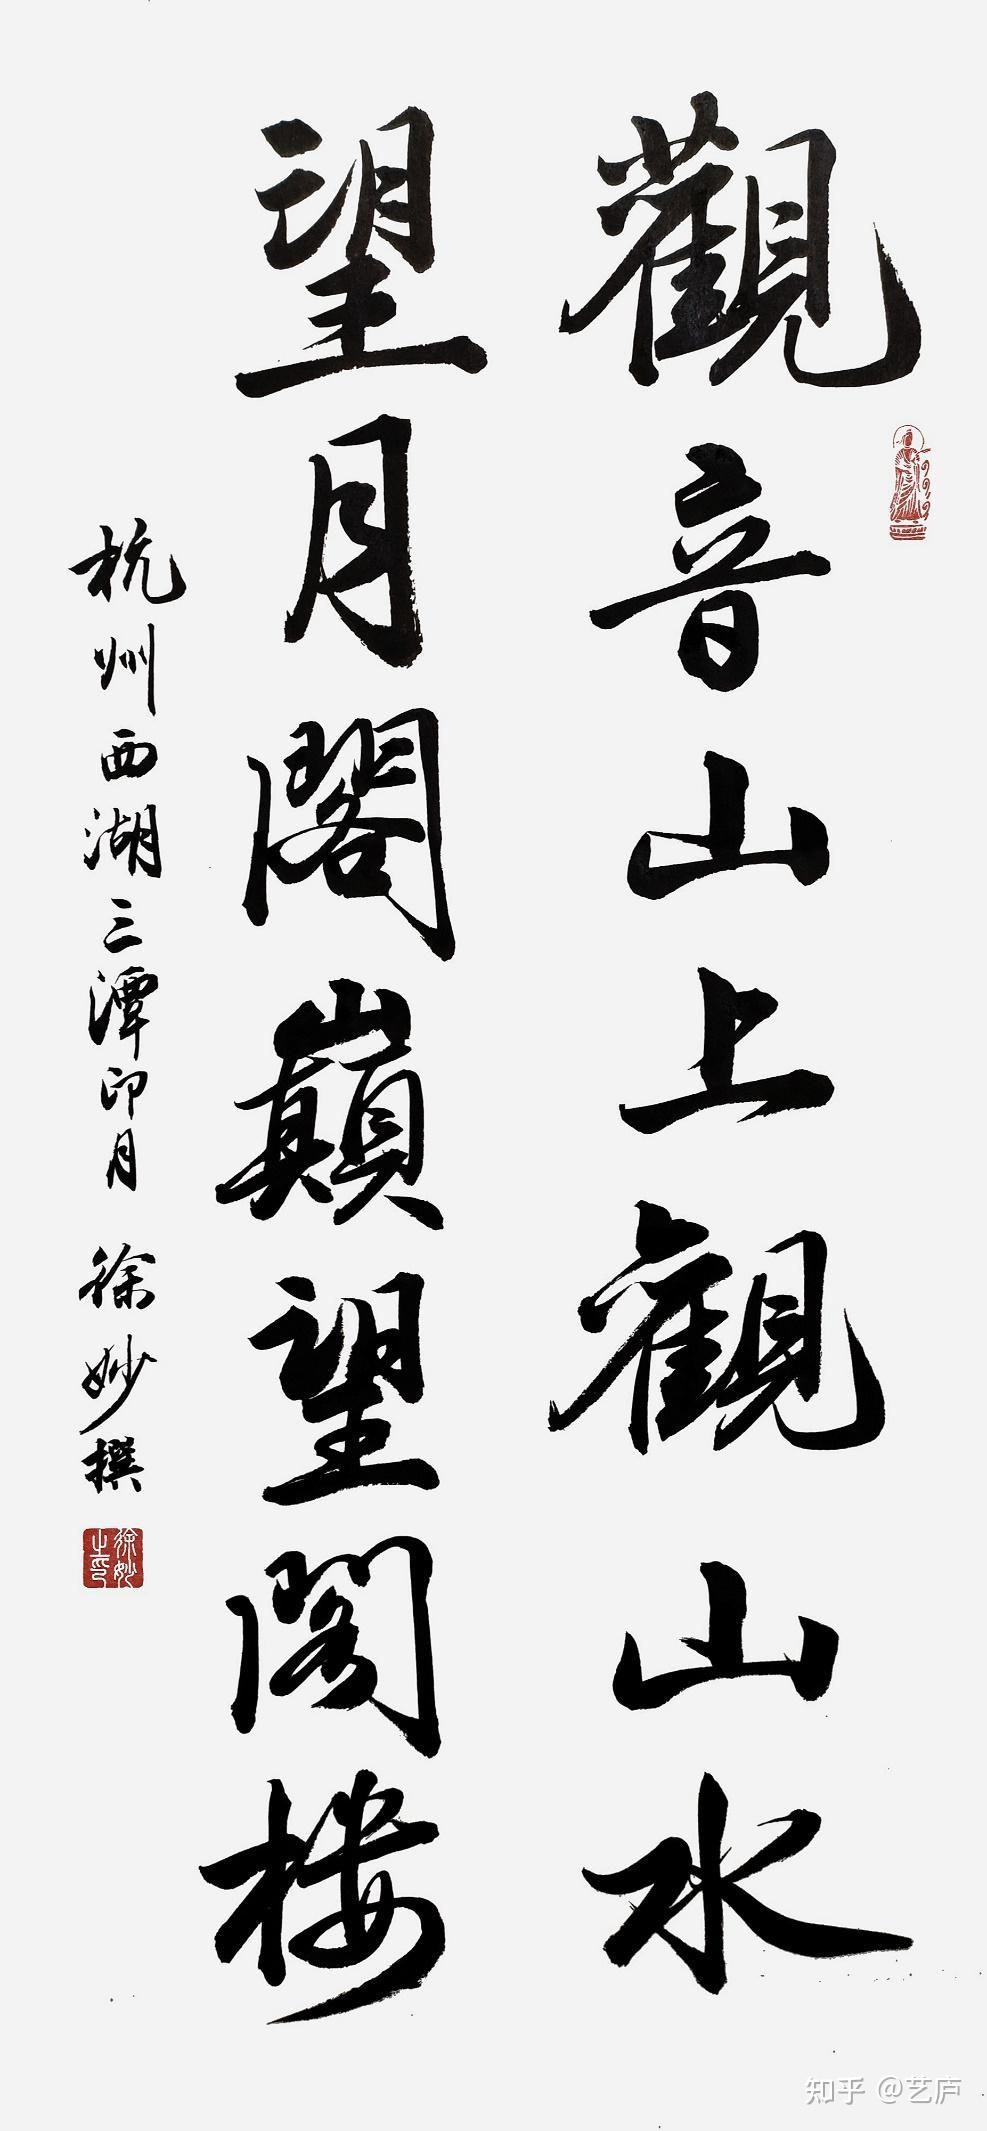 觀音山上觀山水
望月閣巔望閣楼
杭州西湖三潭印月 徐妙撰
徐妙之印
知乎 @艺庐